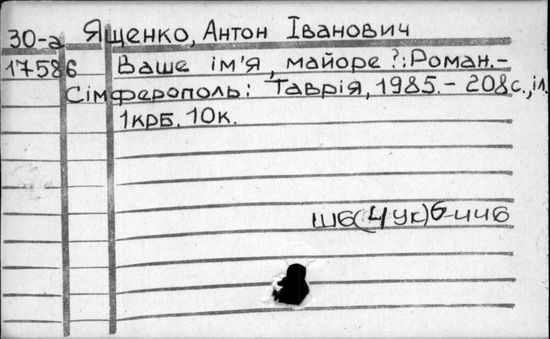 30-а Ященко, Антон Іванович
17586 Ваше ім'я, майоре?: Роман.-
Сімферополь: Таврія, 1985.- 208с., іл.
1крб. 10к.
Ш6(4Ук)6-446